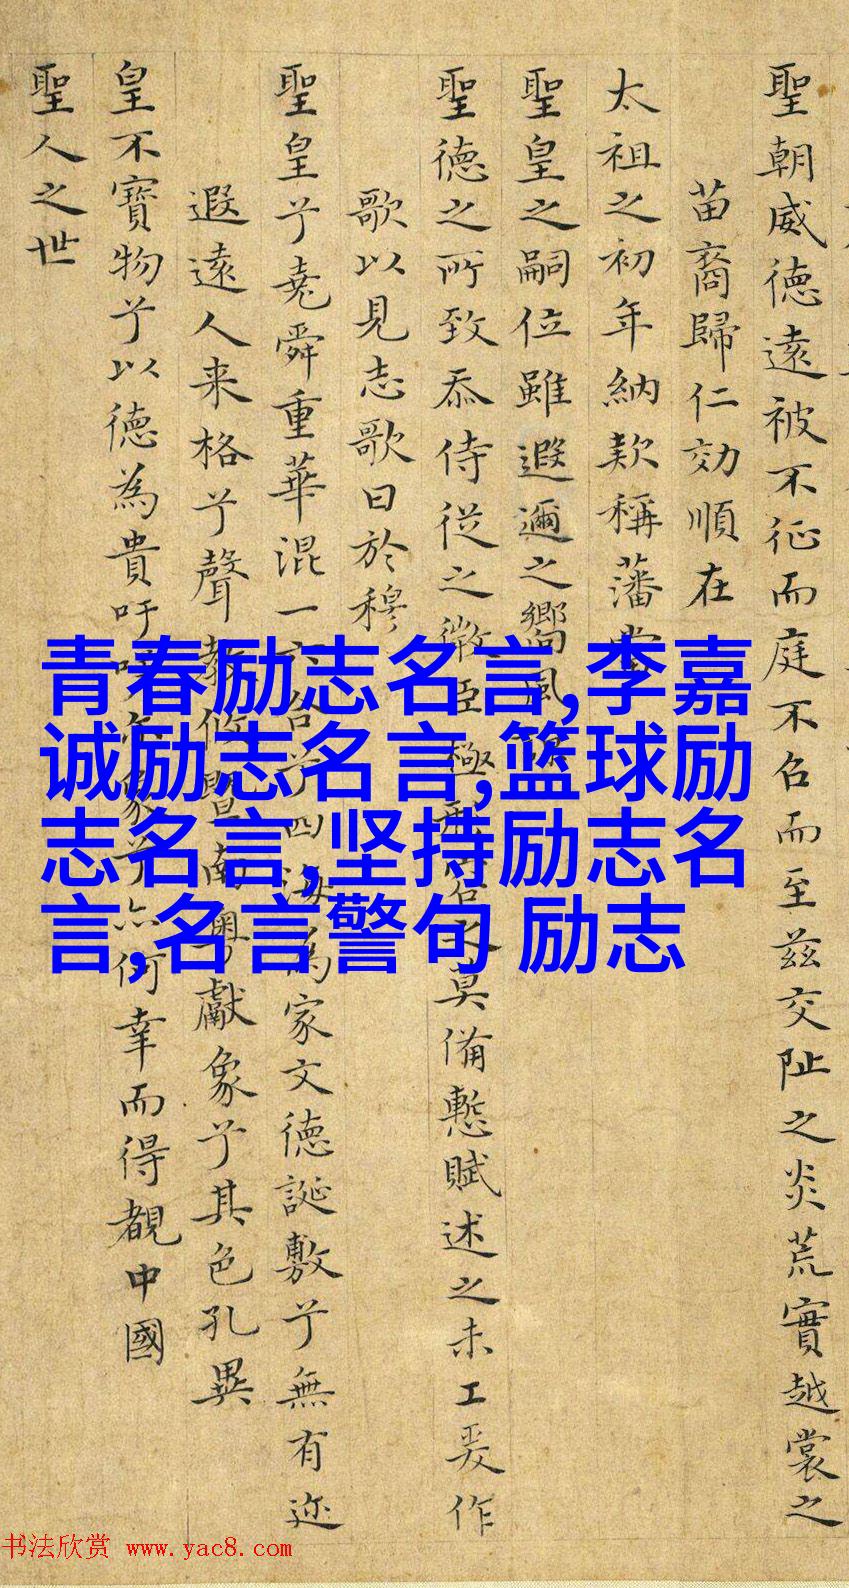 聖朝威德遠被不征而庭不召而至茲交阯之炎荒實越裳之
苗裔歸仁効順在
太祖之初年納款稱藩
聖皇之嗣位雖遐邇之嚮風
聖德之所致忝侍從之微臣極形容之莫備慙賦述之未工爰作
歌以見志歌曰於穆
聖皇兮堯舜重華混一六合兮四海為家文德誕敷兮無有迩
遐遠人来格兮聲教攸暨南粤獻象兮其色孔異
皇不寶物兮以德為貴吁嗟象兮何幸而得覩中國
聖人之世
青春励志名言,李嘉
诚励志名言,篮球励
志名言,坚持励志名
言,名言警句 励志
书法欣赏 www.yac8.com